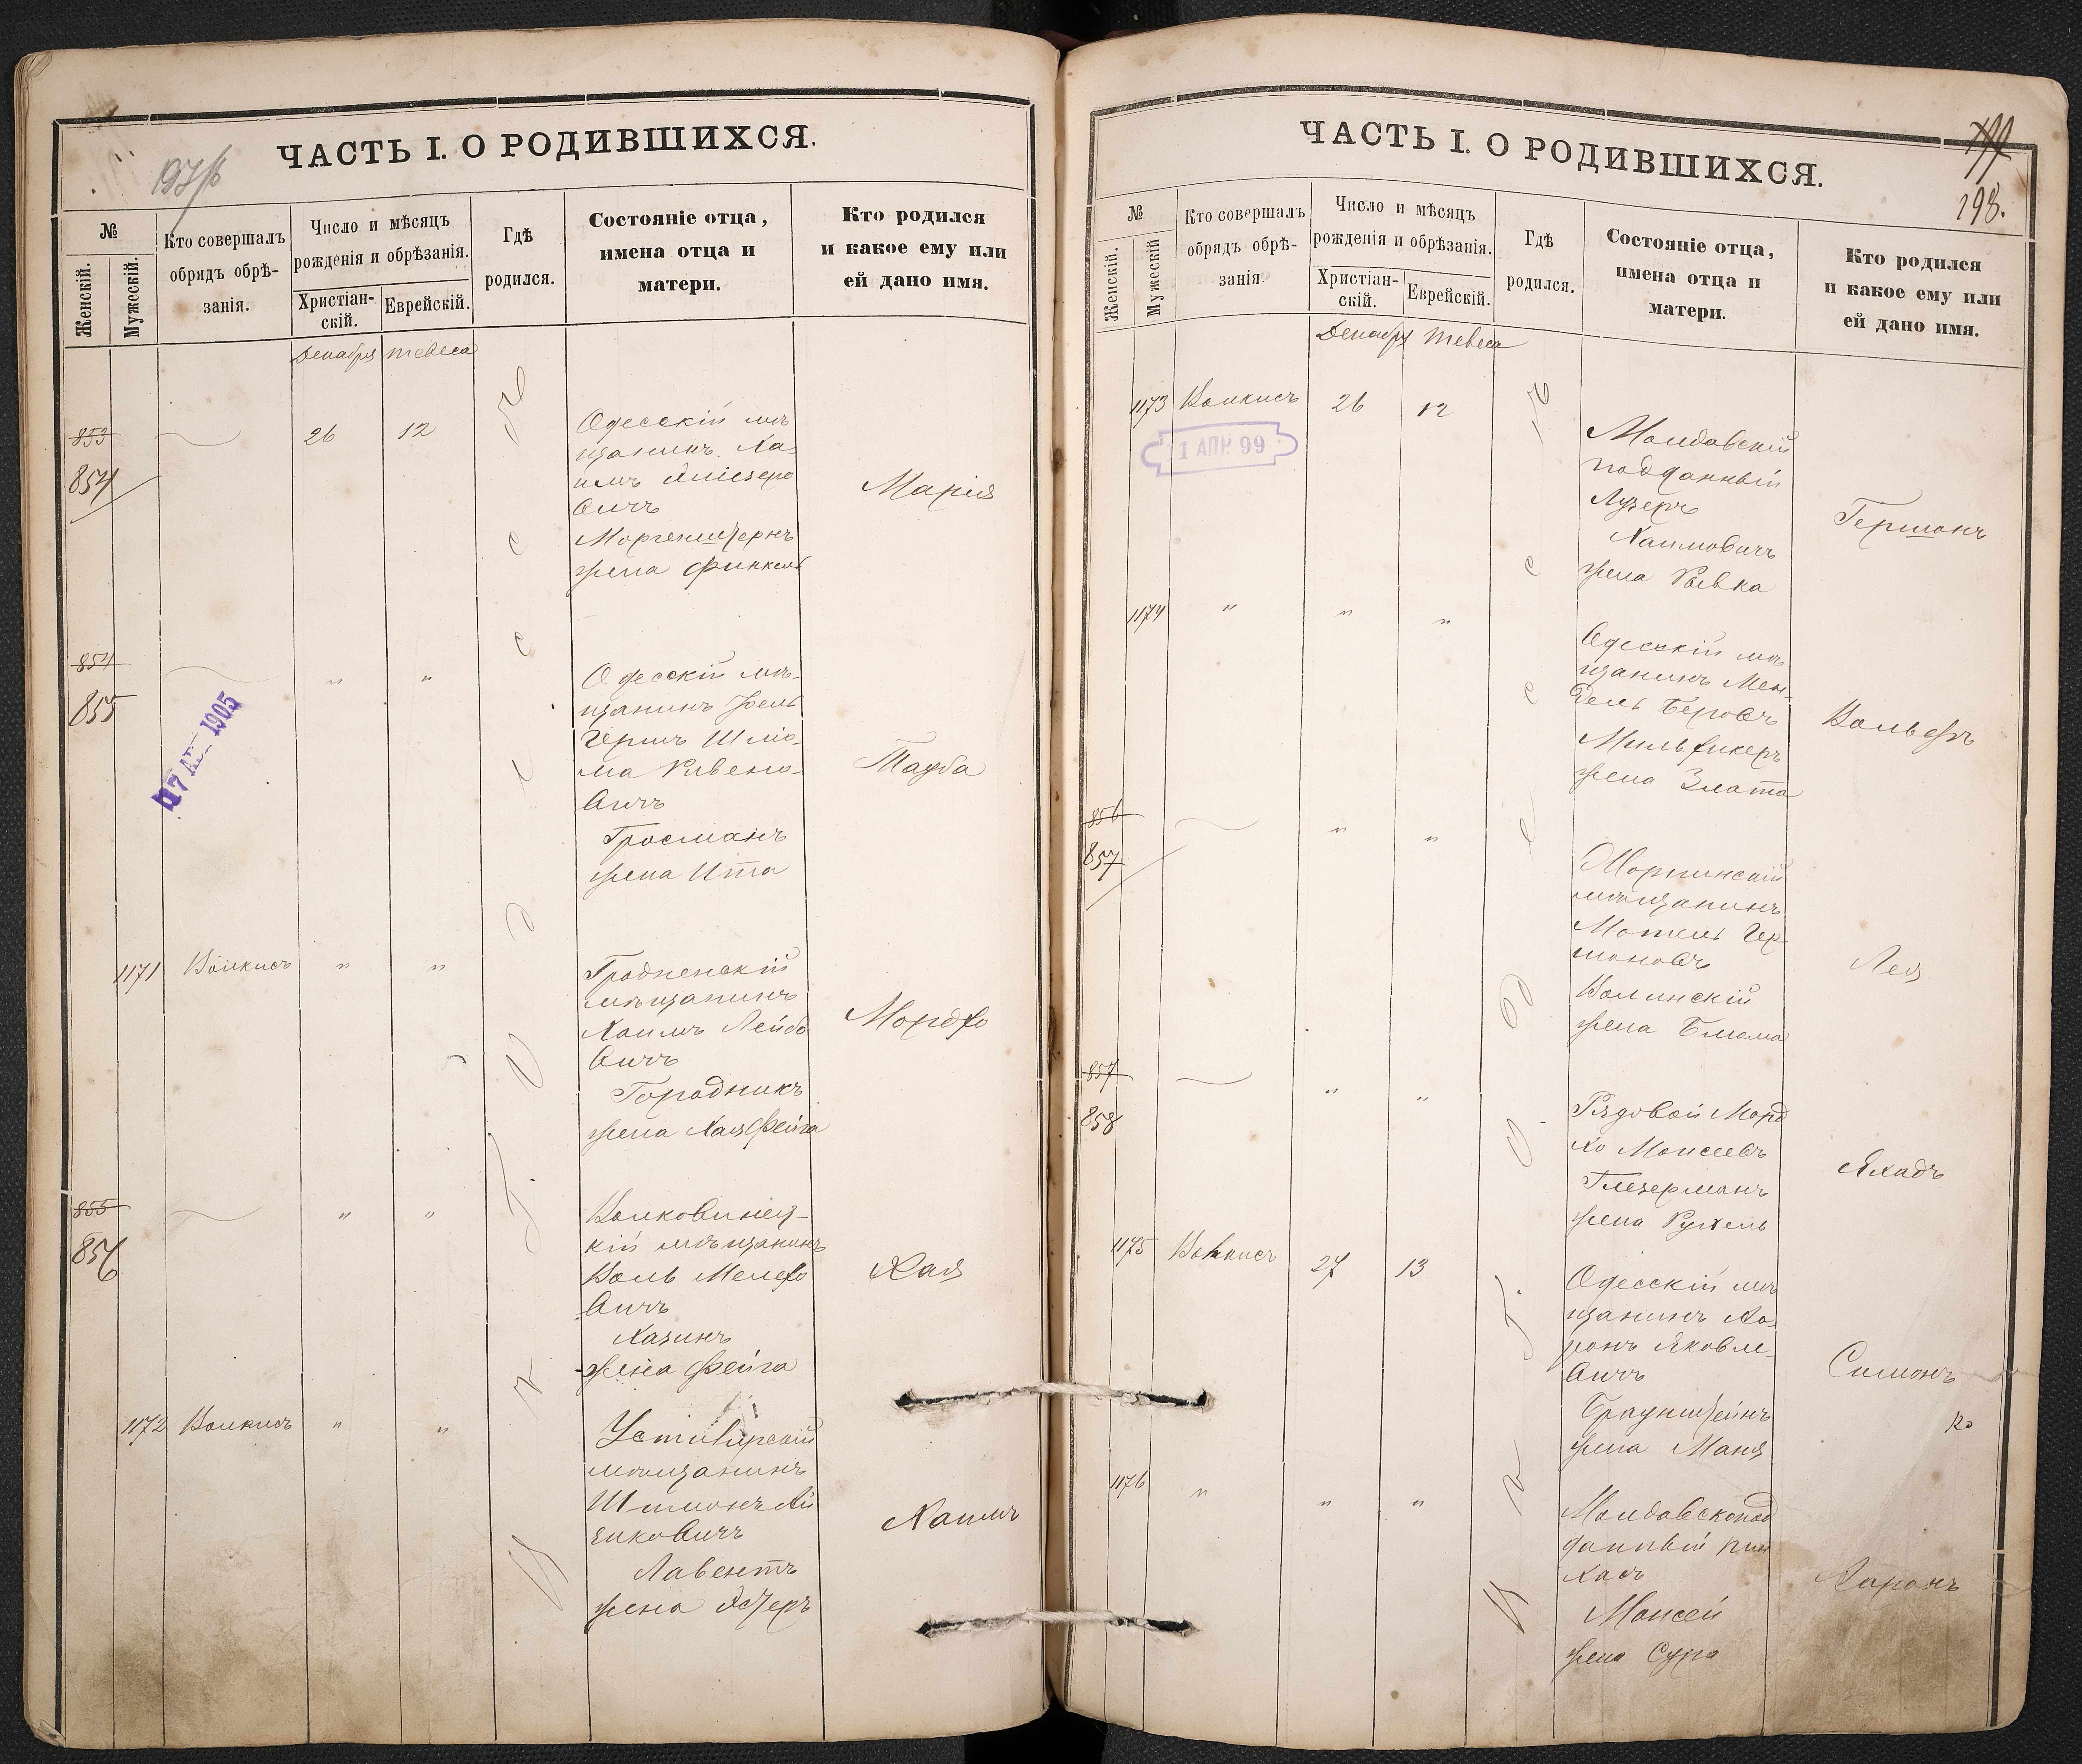 ЧАСТЬ I. О РОДИВШИХСЯ.
№
Женскій.
Мужескій.
Кто совершалъ
обрядъ обрѣ-
занія.
Число и мѣсяцъ
рожденія и обрѣзанія.
Христіан-
скій.
Еврейскій.
Гдѣ
родился.
Состояніе отца,
имена отца и
матери.
Кто родился
и какое ему или
ей дано имя.
Декабря Тевеса
853
854
26 12
Одесскій мѣ
щанинъ Ха-
имъ
вичъ
Моргенштернъ
жена Финкель
Марія
854
855
" "
Одесскій мѣ-
щанинъ
Гершъ Шліо-
ма Рувено-
вичъ
Гросманъ
жена Ита
Тауба
17 1905
1171 Волкисъ " "
Гродненскій
мѣщанинъ
Хаимъ Лейбо
вичъ
Городникъ
жена Хая Фейга
Мордко
855
856
" "
кій мѣщанинъ
Воль
вичъ
Хазинъ
жена Фейга
Хая
1172 Волкисъ " "
мѣщанинъ
Шимонъ
вичъ
Лавентъ
жена Эстеръ
Хаимъ
ЧАСТЬ I. О РОДИВШИХСЯ.
198.
№
Женскій.
Мужескій
Кто совершалъ
обрядъ обрѣ-
занія.
Число и мѣсяцъ
рожденія и обрѣзанія.
Христіан-
скій.
Еврейскій.
Гдѣ
родился.
Состояніе отца,
имена отца и
матери.
Кто родился
и какое ему или
ей дано имя.
Декабря Тевеса
1173 Волкисъ 26 12
1 АПР. 99
Молдавскій
подданный
Лузеръ
Хаимовичъ
жена Ривка
Гершонъ
1174 " " "
Одесскій мѣ
щанинъ Мен-
дель Беровъ
Мильфикеръ
жена Злата
Вольфъ
856
857
" "
мѣщанинъ
Мотель Гер-
шоновъ
Волинскій
жена Блюма
Лея
857
858
" "
Рядовой Морд
ко Моисеевъ
Глезерманъ
жена Рухель
1175 Волкисъ 27 13
Одесскій мѣ
щанинъ Аа-
ронъ Яковле-
вичъ
Браунштейнъ
жена Маня
Симонъ
1176 " " "
Молдавскопод
данный Пин
хасъ
Моисей
жена Сура
Ааронъ